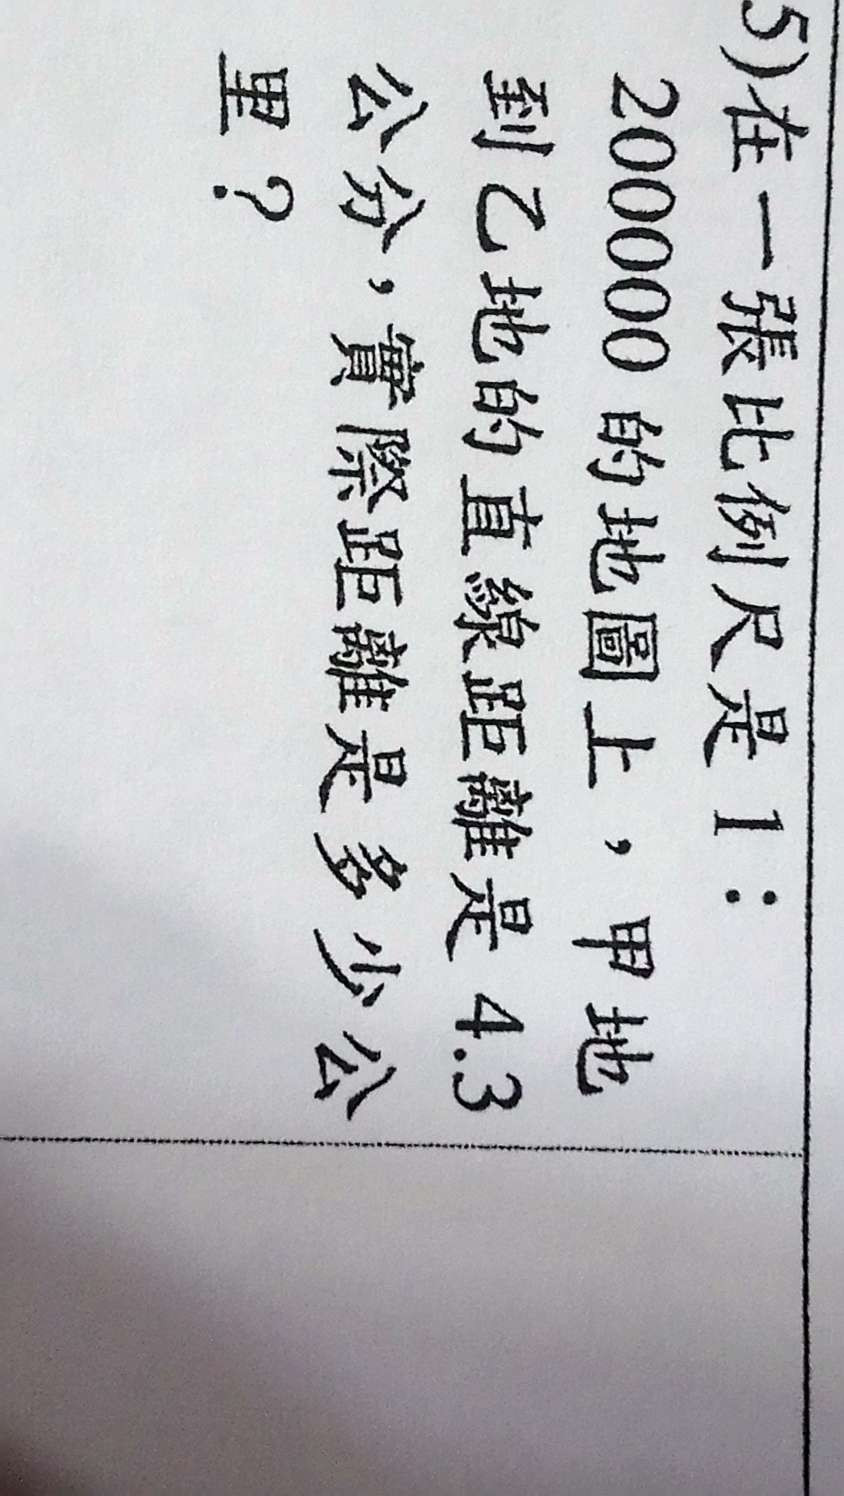 5)在一張比例尺是 1：
200000 的地圖上，甲地
到乙地的直線距離是 4.3
公分，實際距離是多少公
里？